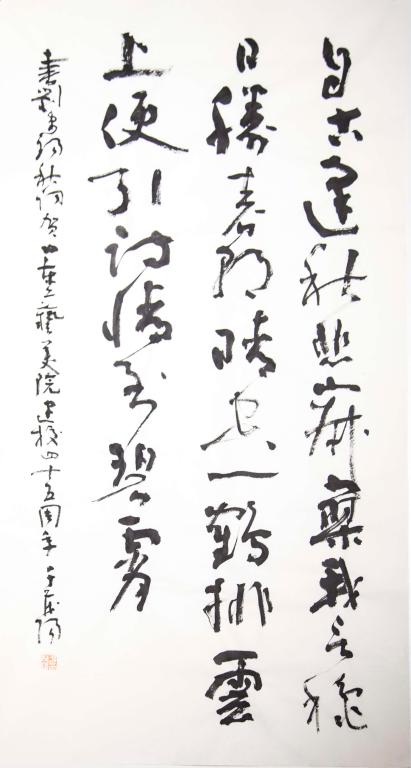 自古逢秋悲寂寥我言秋
日勝春朝晴空一鶴排雲
上便引诗情到碧霄
書劉禹锡秋词贺山东工藝美院建校四十五周年于茂阳